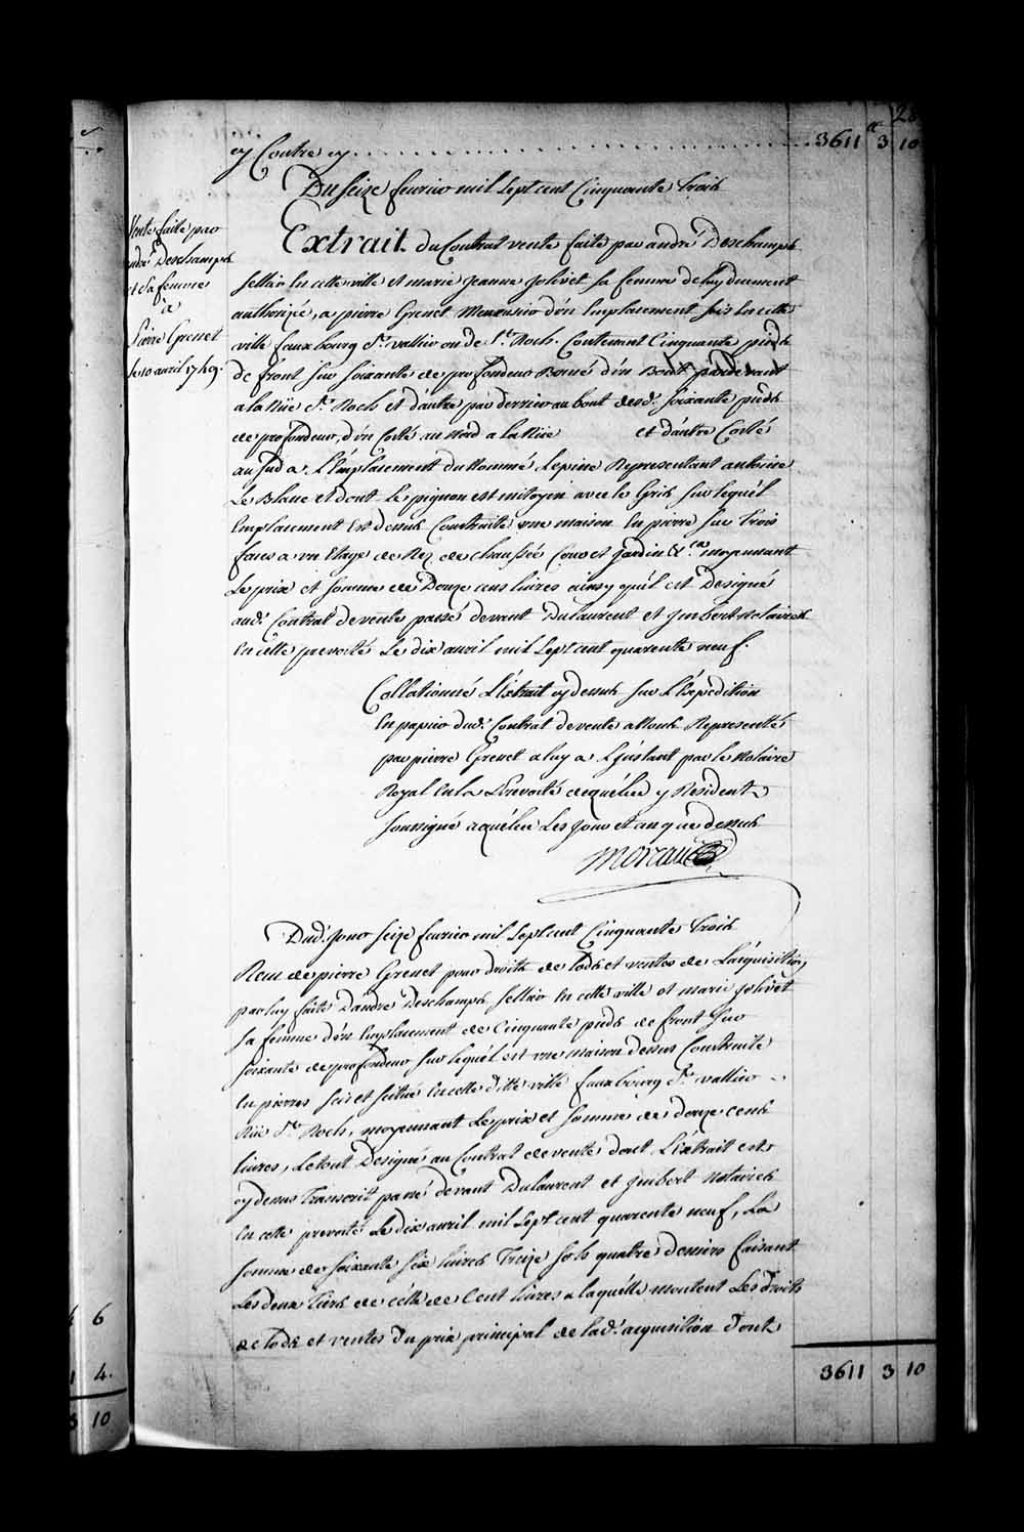 cy Contre cy . . . . . . . . . . . . . . . . . . . . . . . 3611 # 3 10
Du seize fevrier mil sept cent Cinquante trois
Vente faite par
andré Deschamps
et sa femme
a
Pierre Grenet
le 10 avril 1749.
Extrait du Contrat vente faite par andré Deschamps
sellier en cette ville et marie jeanne jolivet sa femme de luy duement
authorizée, a pierre Grenet Menuisier d'un Emplacement scis en cette
ville fauxbourg St. vallier ou de St. Roch. Contenant Cinquante pieds
de front sur soixante de profondeur Borné d'un Bout pardevant
a la Rüe St. Roch et d'autre par derrier au bout desd. soixante pieds
de profondeur, d'un Costé au Nord a la Rüe et d'autre Costé
au sud a L'Emplacement du Nommé Lepine Representant antoine
Le Blanc et dont le pignon est mitoyen avec les Gris sur lequél
Emplacement Est dessus Construitte une maison En pierre sur trois
faces a un Etage de Rez de chaussée Cour et jardin &ca. moyennant
Le prix et somme de Douze cens livres ainsy qu'il est Designé
aud. Contrat de vente passé devant Dulaurent et Imbert Notaires
En cette prevosté Le dix avril mil sept cent quarente neuf.
Collationné L'Extrait cy dessus sur L'Expedition
En papier dud. Contrat de vente a Nous Representée
par pierre Grenet a luy a L'jnstant par le Notaire
Royal En la Prevosté dequébec y Resident
soussigné aquébec Les jour et an que dessus
Moreau
Dud. jour seize fevrier mil sept cent Cinquante trois
Recu de pierre Grenet pour droits de lods et ventes de L'acquisition
par luy faite D'andré Deschamps sellier En cette ville et marie jolivet
sa femme d'un Emplacement de Cinquante pieds de front sur
soixante de profondeur sur lequél est une maison dessus Construitte
En pierres scis et scitué En cette ditte ville fauxbourg St. vallier
Rüe St. Roch, moyennant Le prix et somme de douze cens
livres, Le tout Designé au Contrat de vente dont L'Extrait est
cy dessus Transcrit passé devant Dulaurent et Imbert Notaires
En cette prevosté Le dix avril mil sept cent quarente neuf, La
somme de soixante six livres Treize sols quatre deniers faisant
Les deux tiers de célle de Cent livres a laquélle montent Les Droits
de lods et ventes Du prix principal de lad. acquisition Dont
3611 3 10
6
4.
10